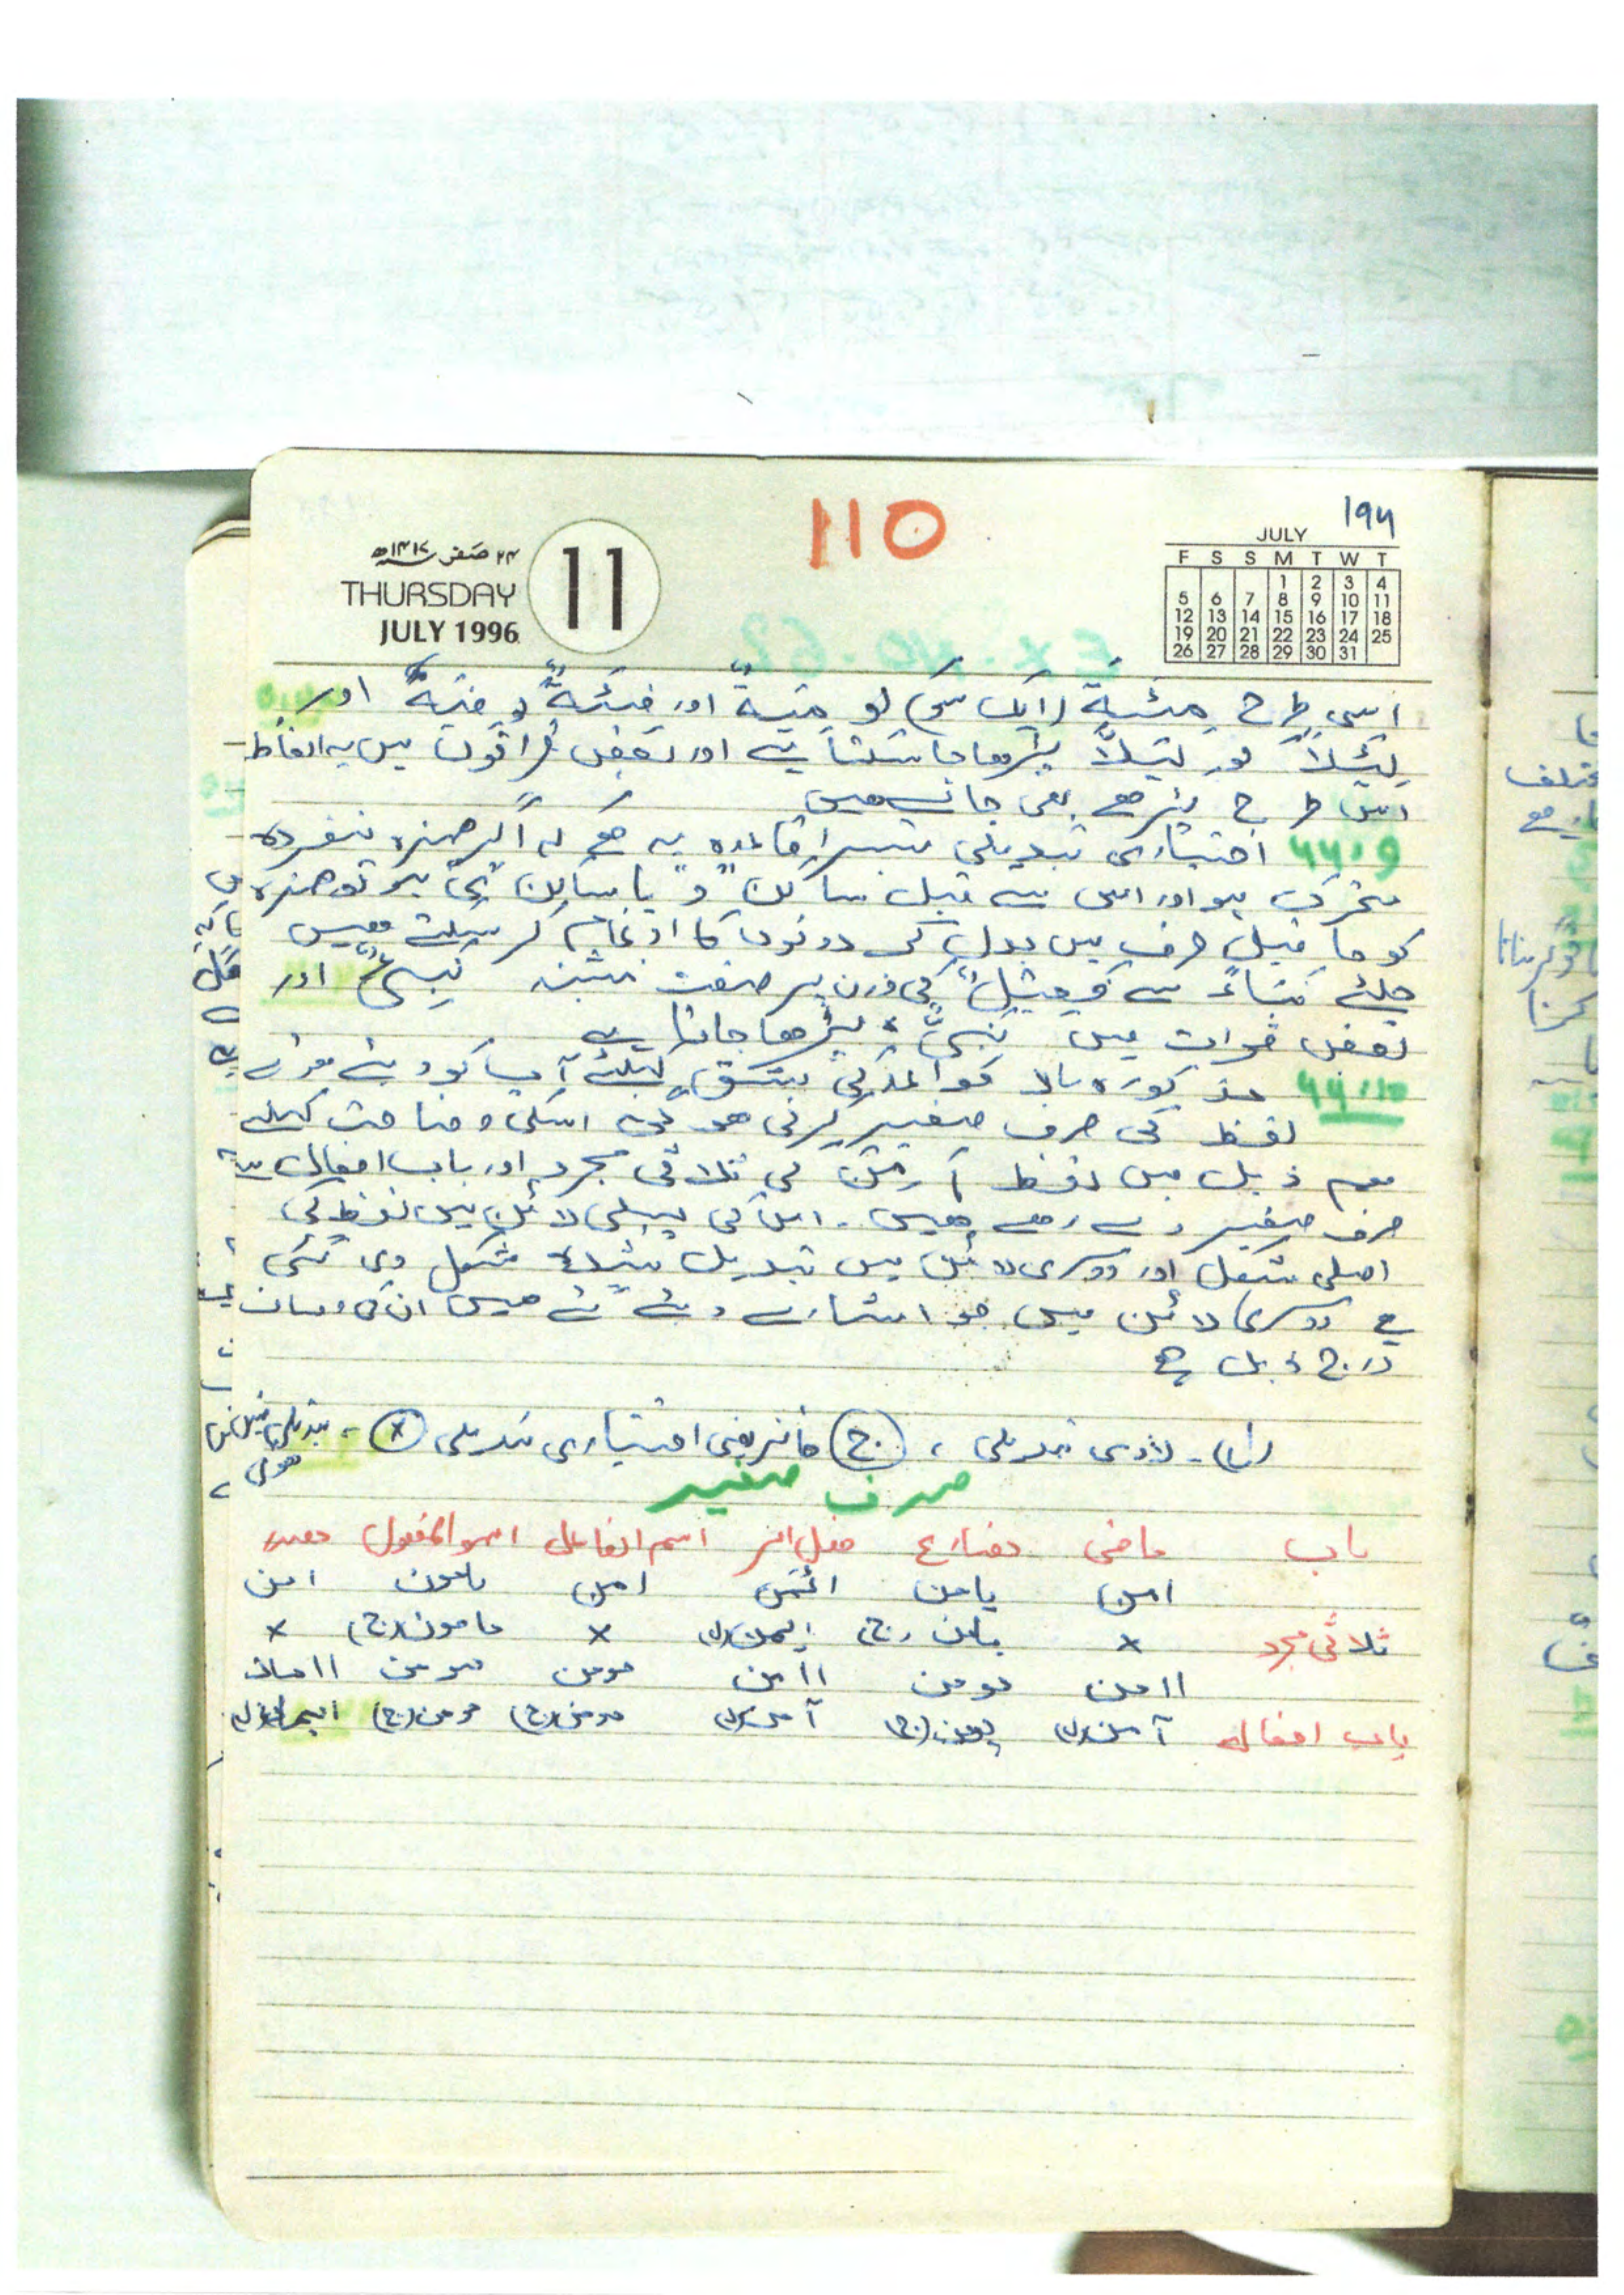 110
194
۲۴ صفر ۱۴۱۷ھ
THURSDAY
JULY 1996
11
JULY
F S S M T W T
1 2 3 4
5 6 7 8 9 10 11
12 13 14 15 16 17 18
19 20 21 22 23 24 25
26 27 28 29 30 31
اسی طرح مِئَةٌ (ایک سو) کو مِیَةٌ اور فِئَةٌ کو فِیَةٌ اور
لِئَلَّا کو لِیَلَّا پڑھا جا سکتا ہے اور بعض قراتوں میں یہ الفاظ
اس طرح پڑھے بھی جاتے ہیں
44:9 اختیاری تبدیلی تیسرا قاعدہ یہ ھے کہ اگر ھمزہ منفردہ
متحرک ہو اور اس سے قبل ساکن "و" یا ساکن "ی" ہو تو ھمزہ
کو ما قبل حرف میں بدل کر دونوں کا ادغام کر سکتے ھیں
جیسے سے فَعِیْلٌ کے وزن پر صفت اور
بعض قرات میں نَبِیٌّ پڑھا جاتا ہے
44:10 مذکورہ بالا قواعد کی مشق کیلئے آپ کو دئے ہوئے
لفظ کی صرف صغیر کرنی ھو گی اسکی وضاحت کیلئے
ہم ذیل میں لفظ امن کی ثلاثی مجرد اور باب افعال سے
صرف صغیر دے رھے ھیں۔ اس کی پہلی لائن میں لفظ کی
اصلی شکل اور دوسری لائن میں تبدیل شدہ شکل دی گئی
ہے دوسری لائن میں جو اشارے دئے گئے ھیں ان کی وضاحت
درج ذیل ھے
(ل)۔ لازمی تبدیلی ، (ج) جائز یعنی اختیاری تبدیلی (×) ، تبدیلی نہیں
ھوئی
صرف صغیر
باب ماضی مضارع فعل امر اسم الفاعل اسم المفعول مصدر
امن یامن ائمن امن مامون امن
ثلاثی مجرد × یامن (ج) ایمن (ل) × مامون (ج) ×
اامن یومن اامن مومن مومن اامان
باب افعال آمن (ل) یومن (ج) آمن (ل) مومن (ج) مومن (ج) ایمان (ل)